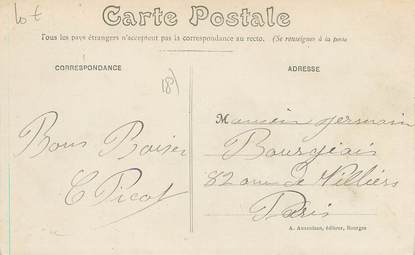 Lot
Carte Postale
Tous les pays étrangers n'acceptent pas la correspondance au recto. (Se renseignes à la poste
CORRESPONDANCE
ADRESSE
18)
Monsieur Germain
Bons Baiser
Bourgeais
82 av de Villiers
C Picot
Paris
A. Auxenfans, éditeur, Bourges